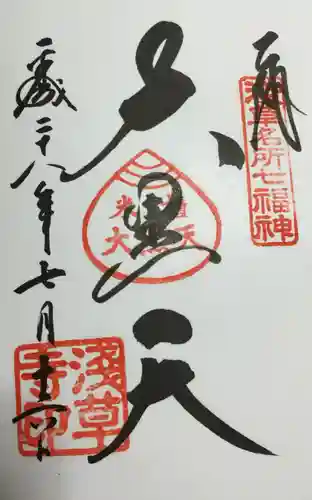 奉拝
浅草名所七福神
大黒天
平成二十八年七月十四日
浅草
寺印